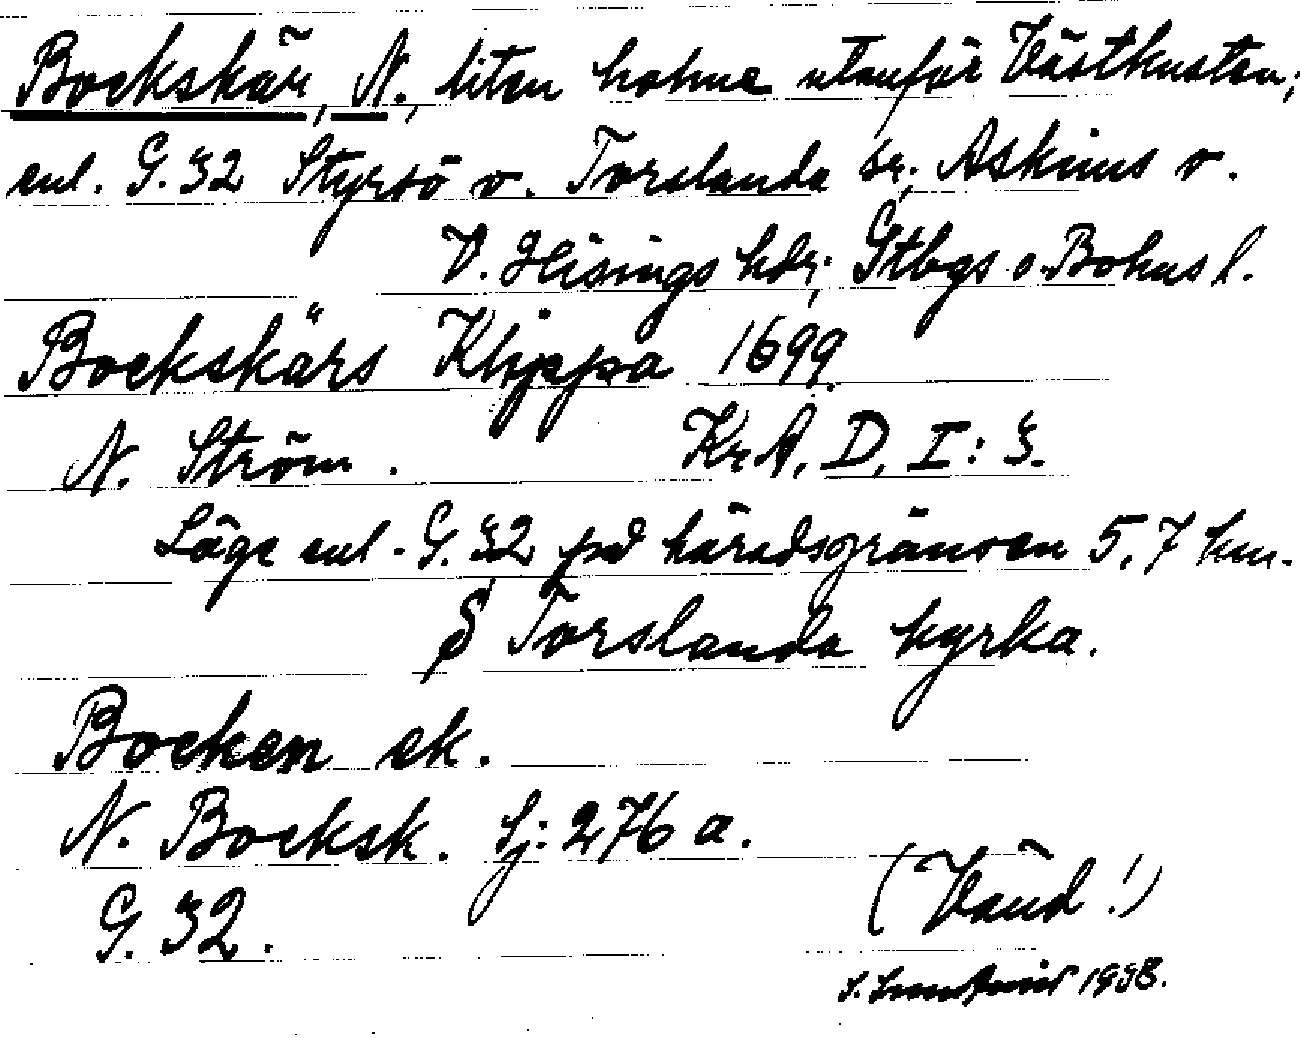 Bockskär, N., liten holme utanför Västkusten;
enl. G. 32 Styrsö o. Torslanda sr; Askims o.
V. Hisings hdr; Gtbgs o. Bohus l.
Bockskärs Klippa 1699.
N. Ström. Kr.A. D. I: 3.
Läge enl. G. 32 på häradsgränsen 5,7 km.
S Torslanda kyrka.
Bocken ek.
N. Bocksk. Sj: 276 a.
G. 32.
(Vänd!)
1938.